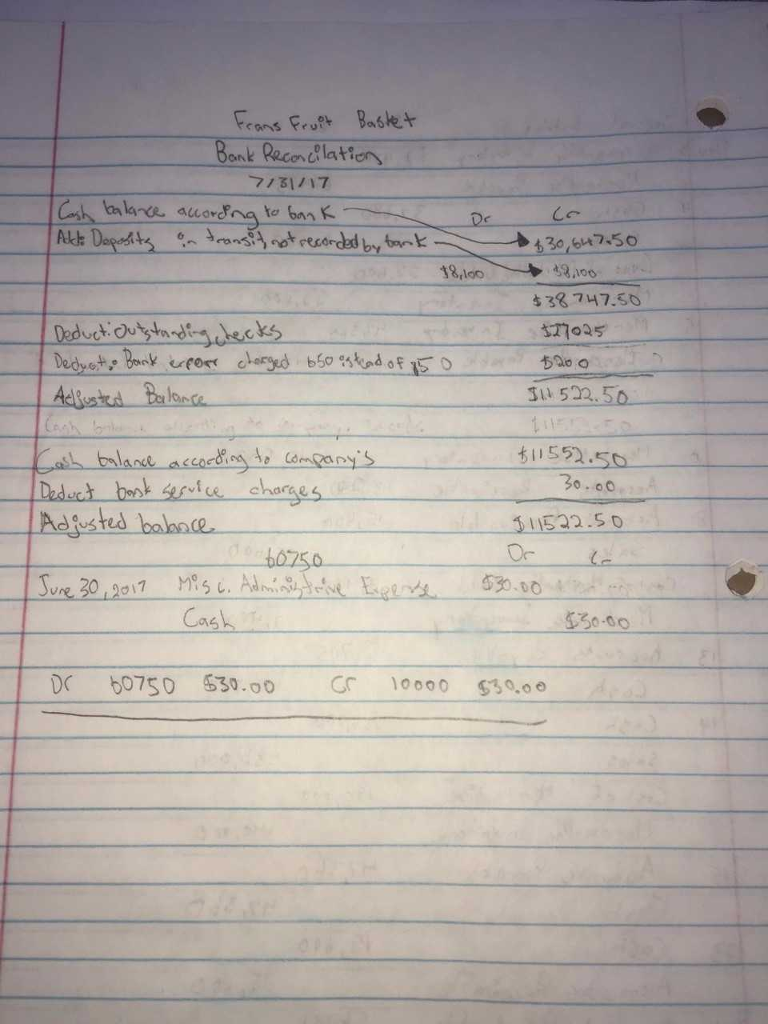 Frans Fruit Basket
Bank Reconcilation
7/31/17
Cash balance according to bank Dr Cr
Add: Deposits in transit, not recorded by bank $30,647.50
$8,100 $8,100
$38747.50
Deduct: Outstanding checks $27025
Deduct: Bank error charged 650 instead of 850 $200
Adjusted Balance $11522.50
Cash balance according to company's $11552.50
Deduct bank service charges 30.00
Adjusted balance $11522.50
60750 Dr Cr
June 30, 2017 Misc. Administrive Expense $30.00
Cash $30.00
Dr 60750 $30.00 Cr 10000 $30.00